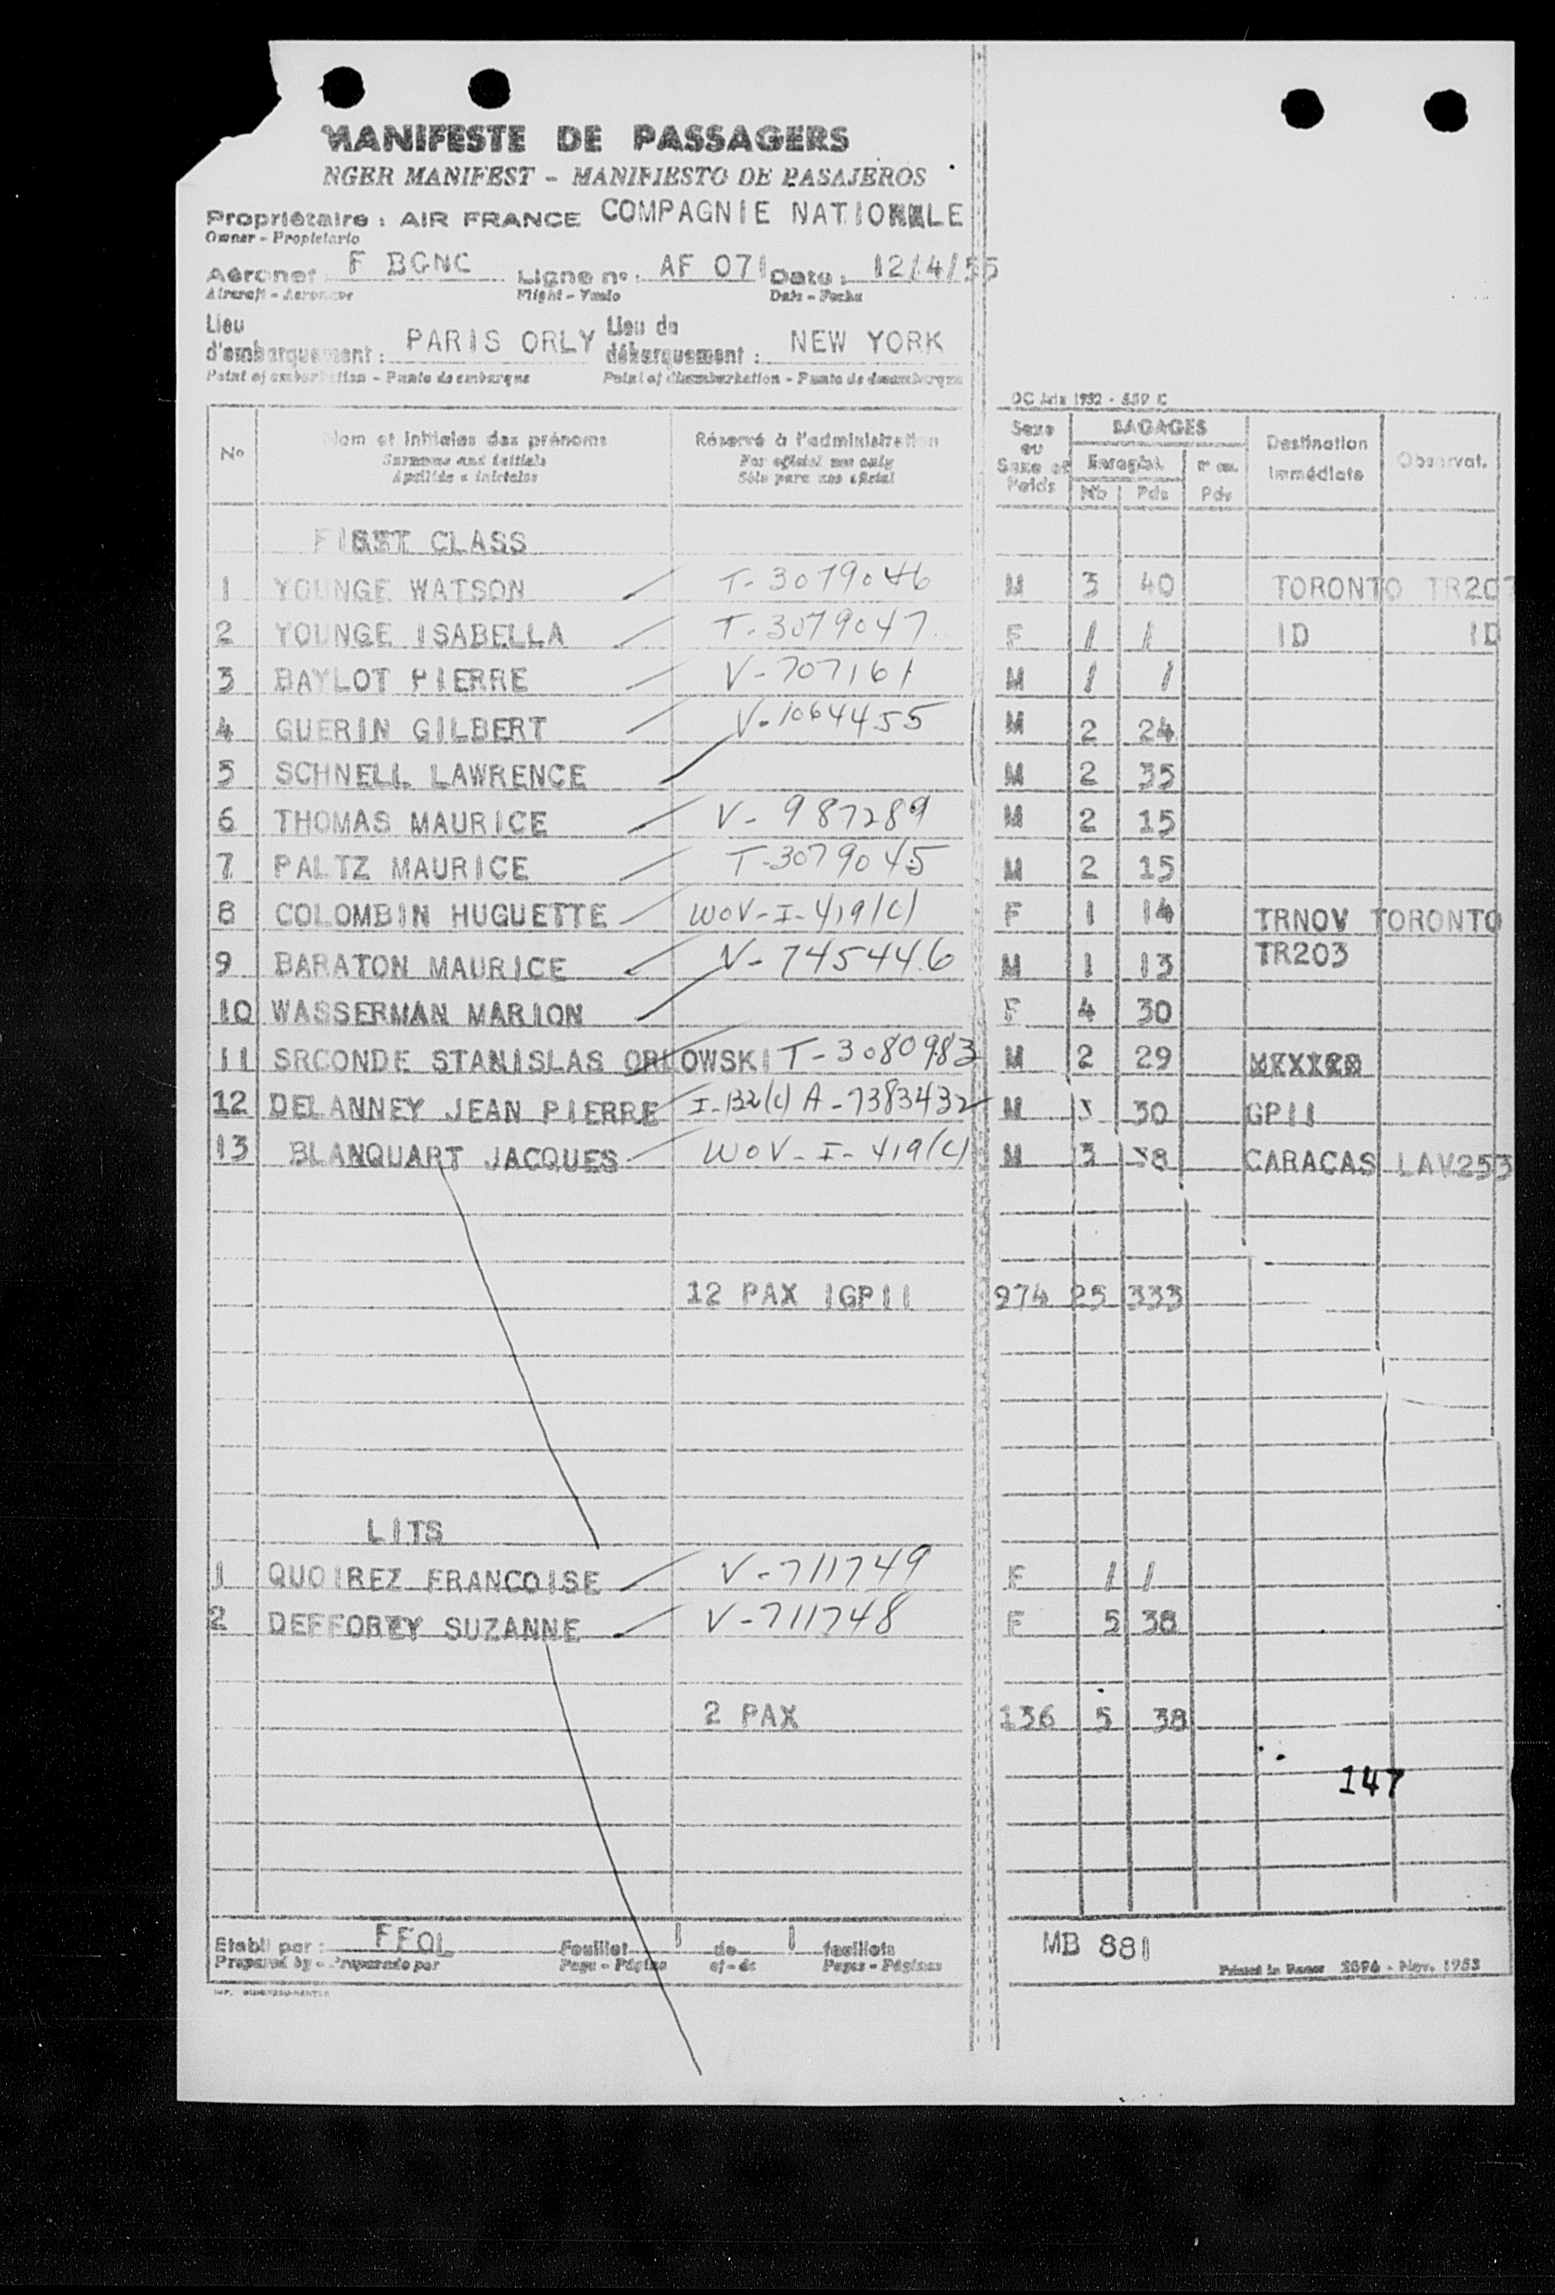 MANIFESTE DE PASSAGERS
NGER MANIFEST - MANIFIESTO DE PASAJEROS
Propriétaire : AIR FRANCE COMPAGNIE NATIONALE
Owner - Propietario
Aéronef F BGNC Ligne n° : AF 071 Date : 12/4/55
Aircraft - Aeronave Flight - Vuelo Date - Fecha
Lieu d'embarquement : PARIS ORLY Lieu de débarquement : NEW YORK
Point of embarkation - Punto de embarque Point of disembarkation - Punto de desembarque
N° Nom et initiales des prénoms Réservé à l'administration Sexe ou Sexe et Poids BAGAGES Destination Immédiate Observat.
Surname and initials For official use only Enregist.
Apellido e iniciales Sólo para uso oficial Nb Pds Pds
FIRST CLASS
1 YOUNGE WATSON T-3079046 M 3 40 TORONTO TR207
2 YOUNGE ISABELLA T-3079047 F / / ID ID
3 BAYLOT PIERRE V-707161 M / /
4 GUERIN GILBERT V-1064455 M 2 24
5 SCHNELL LAWRENCE M 2 35
6 THOMAS MAURICE V-987289 M 2 15
7 PALTZ MAURICE T-3079045 M 2 15
8 COLOMBIN HUGUETTE WOV-I-419(c) F 1 14 TRNOV TORONTO
9 BARATON MAURICE V-745446 M 1 13 TR203
10 WASSERMAN MARION F 4 30
11 SRCONDE STANISLAS ORLOWSKI T-3080983 M 2 29
12 DELANNEY JEAN PIERRE I-132(c) A-7383432 M 3 30 GP11
13 BLANQUART JACQUES WOV-I-419(c) M 3 38 CARACAS LAV253
12 PAX 1GP11 974 25 333
LITS
1 QUOIREZ FRANCOISE V-711749 F / /
2 DEFFOREY SUZANNE V-711748 F 5 38
2 PAX 136 5 38
147
Etabli par : FFOL Feuillet 1 de 1 feuillets MB 881
Prepared by - Preparado por Page - Página of - de Pages - Páginas Printed in France 2896 - Nov. 1953